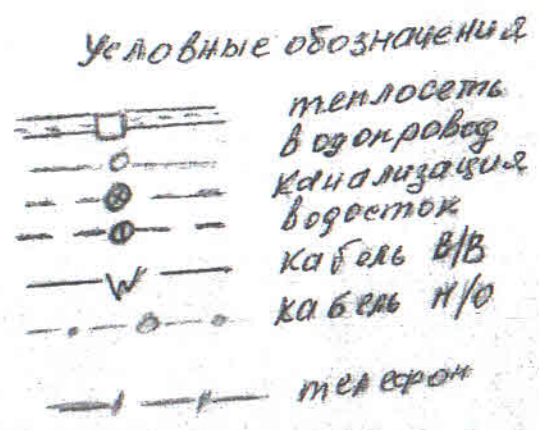 Условные обозначения
теплосеть
водопровод
канализация
водосток
кабель В/В
кабель Н/О
телефон